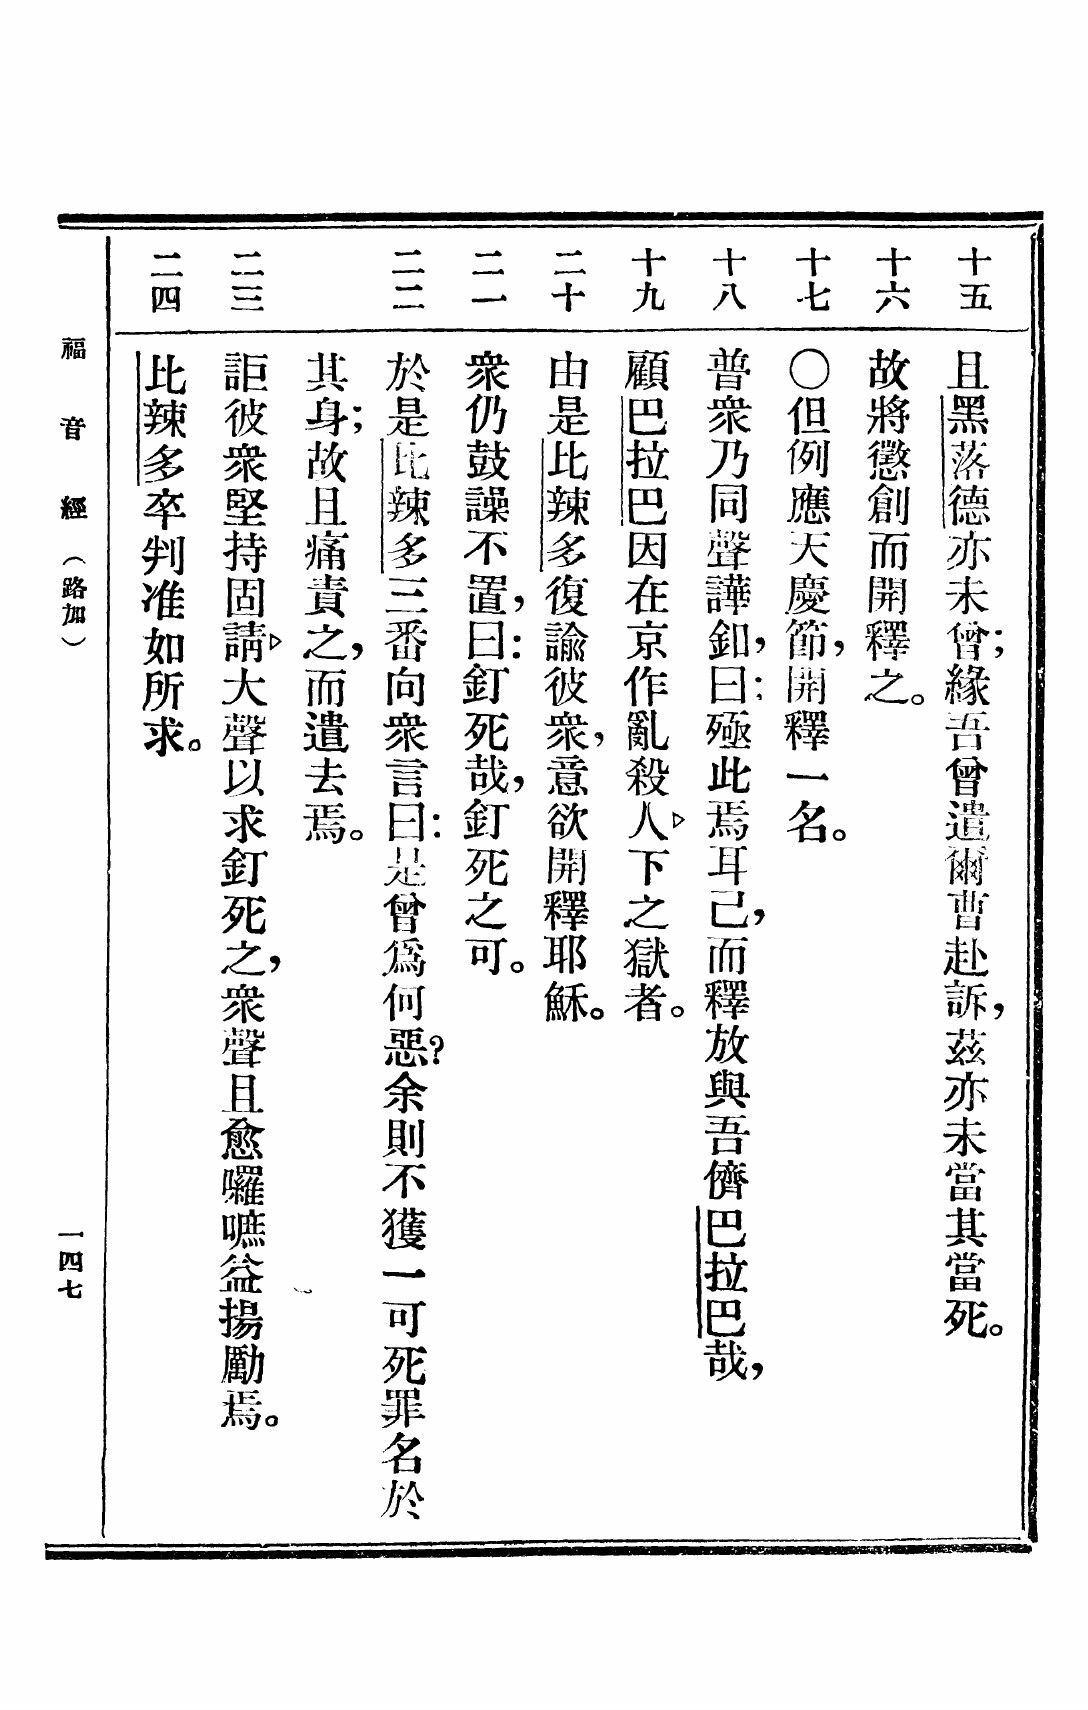 十五 且黑落德亦未曾;緣吾曾遣爾曹赴訴,茲亦未當其當死。
十六 故將懲創而開釋之。
十七 〇但例應天慶節,開釋一名。
十八 普衆乃同聲譁釦,曰:殛此焉耳己,而釋放與吾儕巴拉巴哉,
十九 顧巴拉巴因在京作亂殺人▷下之獄者。
二十 由是比辣多復諭彼衆,意欲開釋耶穌。
二一 衆仍鼓譟不置,曰:釘死哉,釘死之可。
二二 於是比辣多三番向衆言曰:是曾爲何惡?余則不獲一可死罪名於
其身;故且痛責之,而遣去焉。
二三 詎彼衆堅持固請▷大聲以求釘死之,衆聲且愈囉嗻益揚勵焉。
二四 比辣多卒判准如所求。
福音經(路加)
一四七